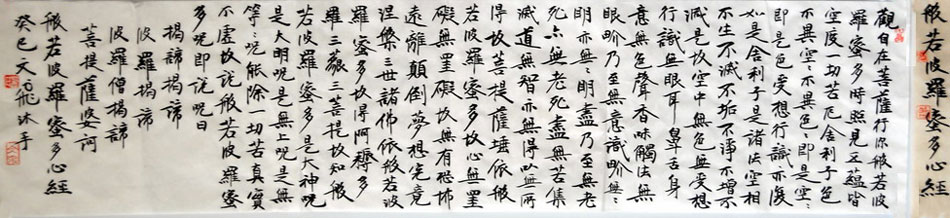 般若波羅蜜多心經
觀自在菩薩行深般若波
羅蜜多時照見五蘊皆
空度一切苦厄舍利子色
不異空〻不異色〻即是空〻
即是色受想行識亦復
如是舍利子是諸法空相
不生不滅不垢不淨不增不
減是故空中無色無受想
行識無眼耳鼻舌身
意無色聲香味觸法無
眼界乃至無意識界無〻
明亦無〻明盡乃至無老
死亦無老死盡無苦集
滅道無智亦無得以無所
得故菩提薩埵依般
若波羅蜜多故心無罣
礙無罣礙故無有恐怖
遠離顛倒夢想究竟
涅槃三世諸佛依般若波
羅蜜多故得阿耨多
羅三藐三菩提故知般
若波羅蜜多是大神咒
是大明咒是無上咒是無
等〻咒能除一切苦真實
不虛故說般若波羅蜜
多咒即說咒曰
揭諦揭諦
波羅揭諦
波羅僧揭諦
菩提薩婆訶
般若波羅蜜多心經
癸巳文飛沐手